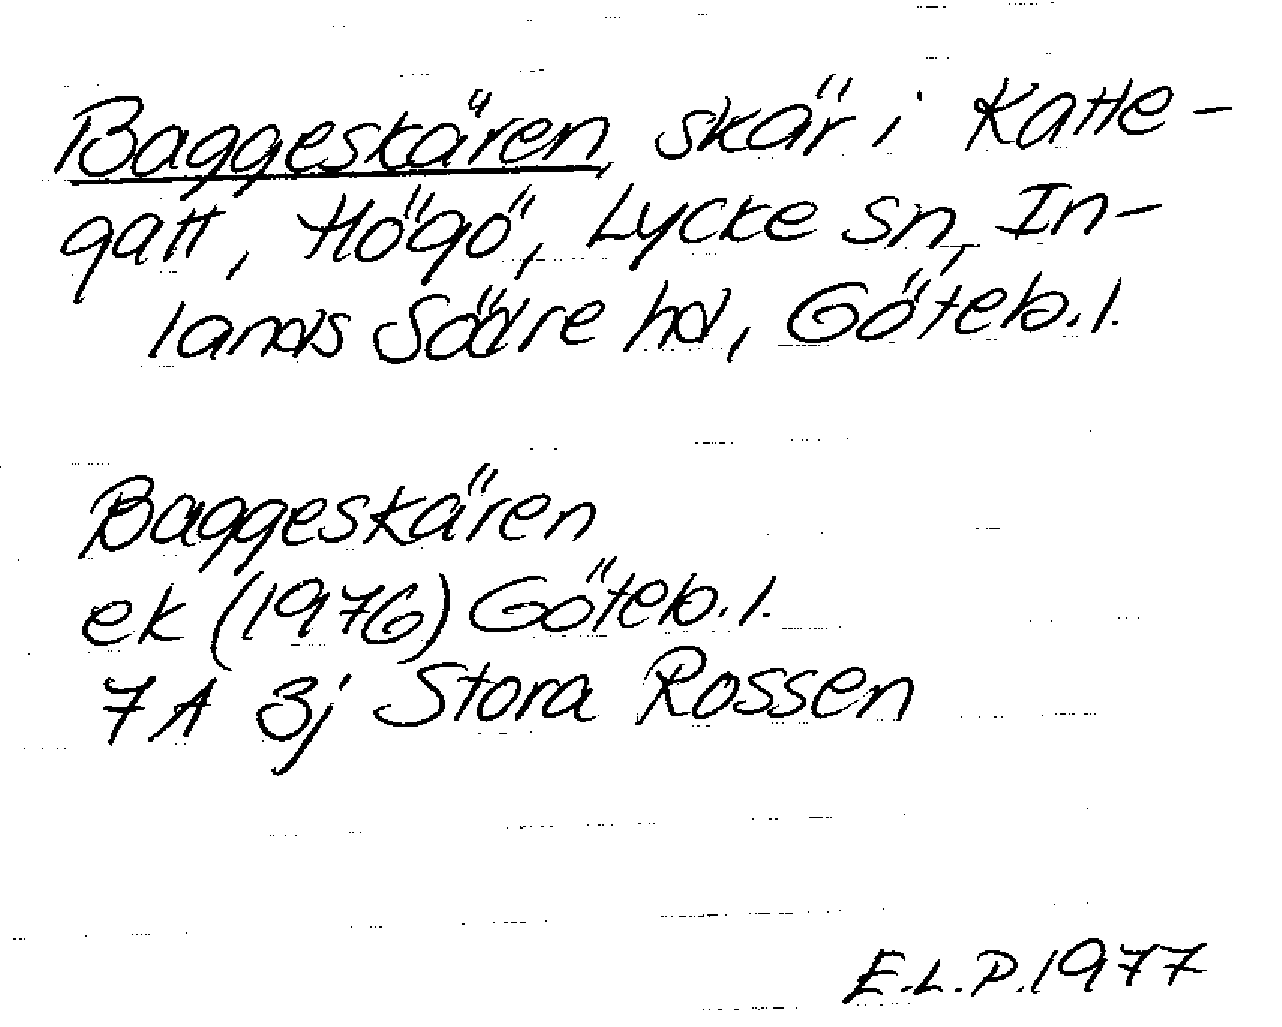 Baggeskären, skär i Katte-
gatt, Högö, Lycke sn, In-
lands Södre hd, Göteb. l.
Baggeskären
ek (1976) Göteb. l.
7 A 3j Stora Rossen
E.L.P. 1977